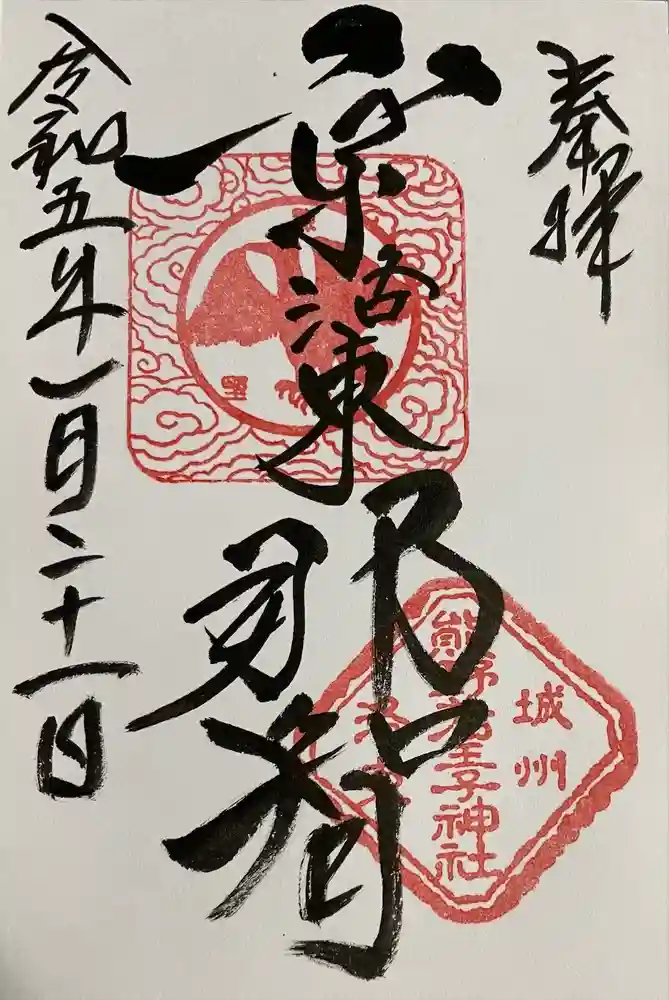 奉拝
京洛東
那智
令和五年一月二十一日
城州
熊野若王子神社
洛東